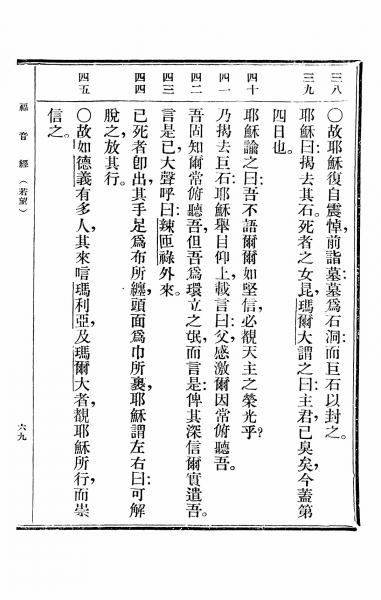 三八 ○故耶穌復自震悼,前詣墓:墓爲石洞:而巨石以封之。
三九 耶穌曰:揭去其石。死者之女昆,瑪爾大謂之曰:主君,已臭矣,今蓋第
四日也。
四十 耶穌諭之曰:吾不語爾:爾如堅信,必覩天主之榮光乎?
四一 乃揭去巨石:耶穌舉目仰上,載言曰:父,感激爾因常俯聽吾。
四二 吾固知爾常俯聽吾,但吾爲環立之氓,而言是:俾其深信爾實遣吾。
四三 言是已,大聲呼曰:辣匝祿外來。
四四 已死者卽出,其手足爲布所纏,頭面爲巾所裹,耶穌謂左右曰:可解
脫之,放其行。
四五 ○故如德義有多人,其來唁瑪利亞,及瑪爾大者,覩耶穌所行,而崇
信之。
福音經(若望) 六九